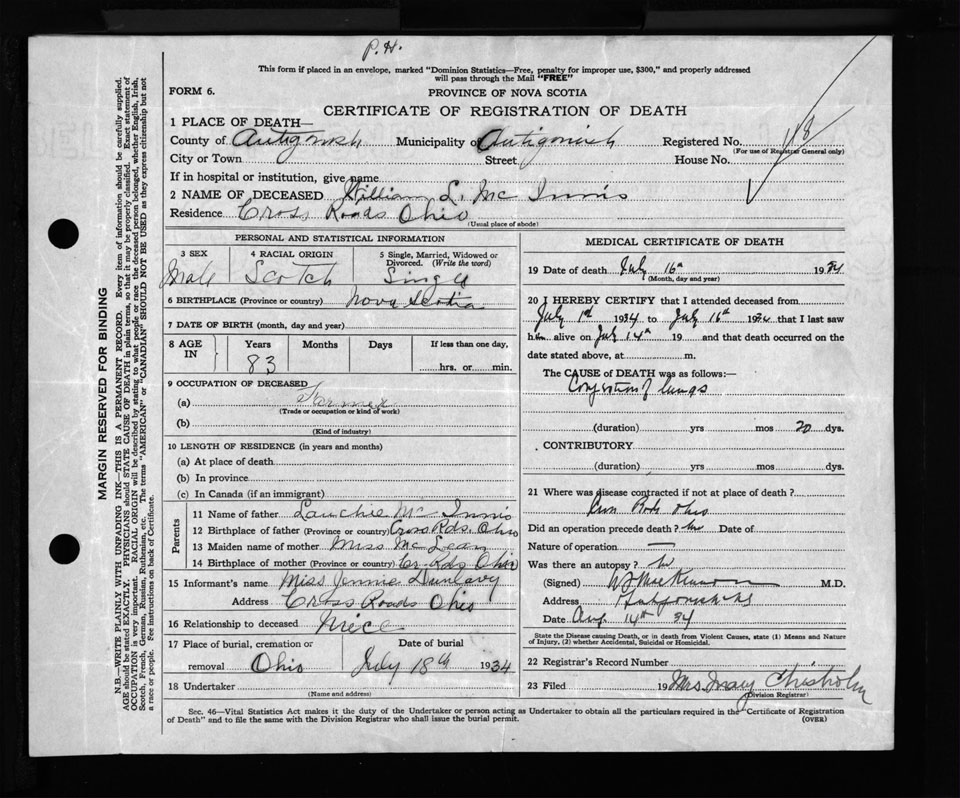 P.H.
This form if placed in an envelope, marked "Dominion Statistics—Free, penalty for improper use, $300," and properly addressed
will pass through the Mail "FREE"
FORM 6.
PROVINCE OF NOVA SCOTIA
CERTIFICATE OF REGISTRATION OF DEATH
1 PLACE OF DEATH—
County of Antigonish Municipality of Antigonish Registered No.
(For use of Registrar General only)
City or Town Street House No.
If in hospital or institution, give name
2 NAME OF DECEASED William L. Mc Innis
Residence Cross Roads Ohio
(Usual place of abode)
PERSONAL AND STATISTICAL INFORMATION
3 SEX 4 RACIAL ORIGIN 5 Single, Married, Widowed or
Divorced. (Write the word)
Male Scotch Single
6 BIRTHPLACE (Province or country) Nova Scotia
7 DATE OF BIRTH (month, day and year)
8 AGE IN Years Months Days If less than one day,
83 hrs. or min.
9 OCCUPATION OF DECEASED
(a) Farmer
(Trade or occupation or kind of work)
(b)
(Kind of industry)
10 LENGTH OF RESIDENCE (in years and months)
(a) At place of death
(b) In province
(c) In Canada (if an immigrant)
Parents
11 Name of father Lauchie Mc Innis
12 Birthplace of father (Province or country) Cross Rds. Ohio
13 Maiden name of mother Miss McLean
14 Birthplace of mother (Province or country) Cr-Rds. Ohio
15 Informant's name Miss Jennie Dunlavy
Address Cross Roads Ohio
16 Relationship to deceased Niece
17 Place of burial, cremation or Date of burial
removal Ohio July 18th 1934
18 Undertaker
(Name and address)
MEDICAL CERTIFICATE OF DEATH
19 Date of death July 16th 1934
(Month, day and year)
20 I HEREBY CERTIFY that I attended deceased from
July 1st 1934 to July 16th 1934 that I last saw
him alive on July 14th 19 and that death occurred on the
date stated above, at m.
The CAUSE of DEATH was as follows:—
Congestion of lungs
(duration) yrs mos 20 dys.
CONTRIBUTORY
(duration) yrs mos dys.
21 Where was disease contracted if not at place of death?
Ohio
Did an operation precede death? no Date of
Nature of operation —
Was there an autopsy? no
(Signed) M.D.
Address
Date Aug. 14th 34
State the Disease causing Death, or in death from Violent Causes, state (1) Means and Nature
of Injury, (2) whether Accidental, Suicidal or Homicidal.
22 Registrar's Record Number
23 Filed 19 Mrs. Mary Chisholm
(Division Registrar)
Sec. 46—Vital Statistics Act makes it the duty of the Undertaker or person acting as Undertaker to obtain all the particulars required in the "Certificate of Registration
of Death" and to file the same with the Division Registrar who shall issue the burial permit. (OVER)
MARGIN RESERVED FOR BINDING
N.B.—WRITE PLAINLY WITH UNFADING INK—THIS IS A PERMANENT RECORD. Every item of information should be carefully supplied.
AGE should be stated EXACTLY. PHYSICIANS should STATE CAUSE OF DEATH in plain terms, so that it may be properly classified. Exact statement of
OCCUPATION is very important. RACIAL ORIGIN will be described by stating to what people or race the deceased person belonged, whether English, Irish,
Scotch, French, German, Russian, Ruthenian, etc. The terms "AMERICAN" or "CANADIAN" SHOULD NOT BE USED as they express citizenship but not
a race or people. See instructions on back of Certificate.